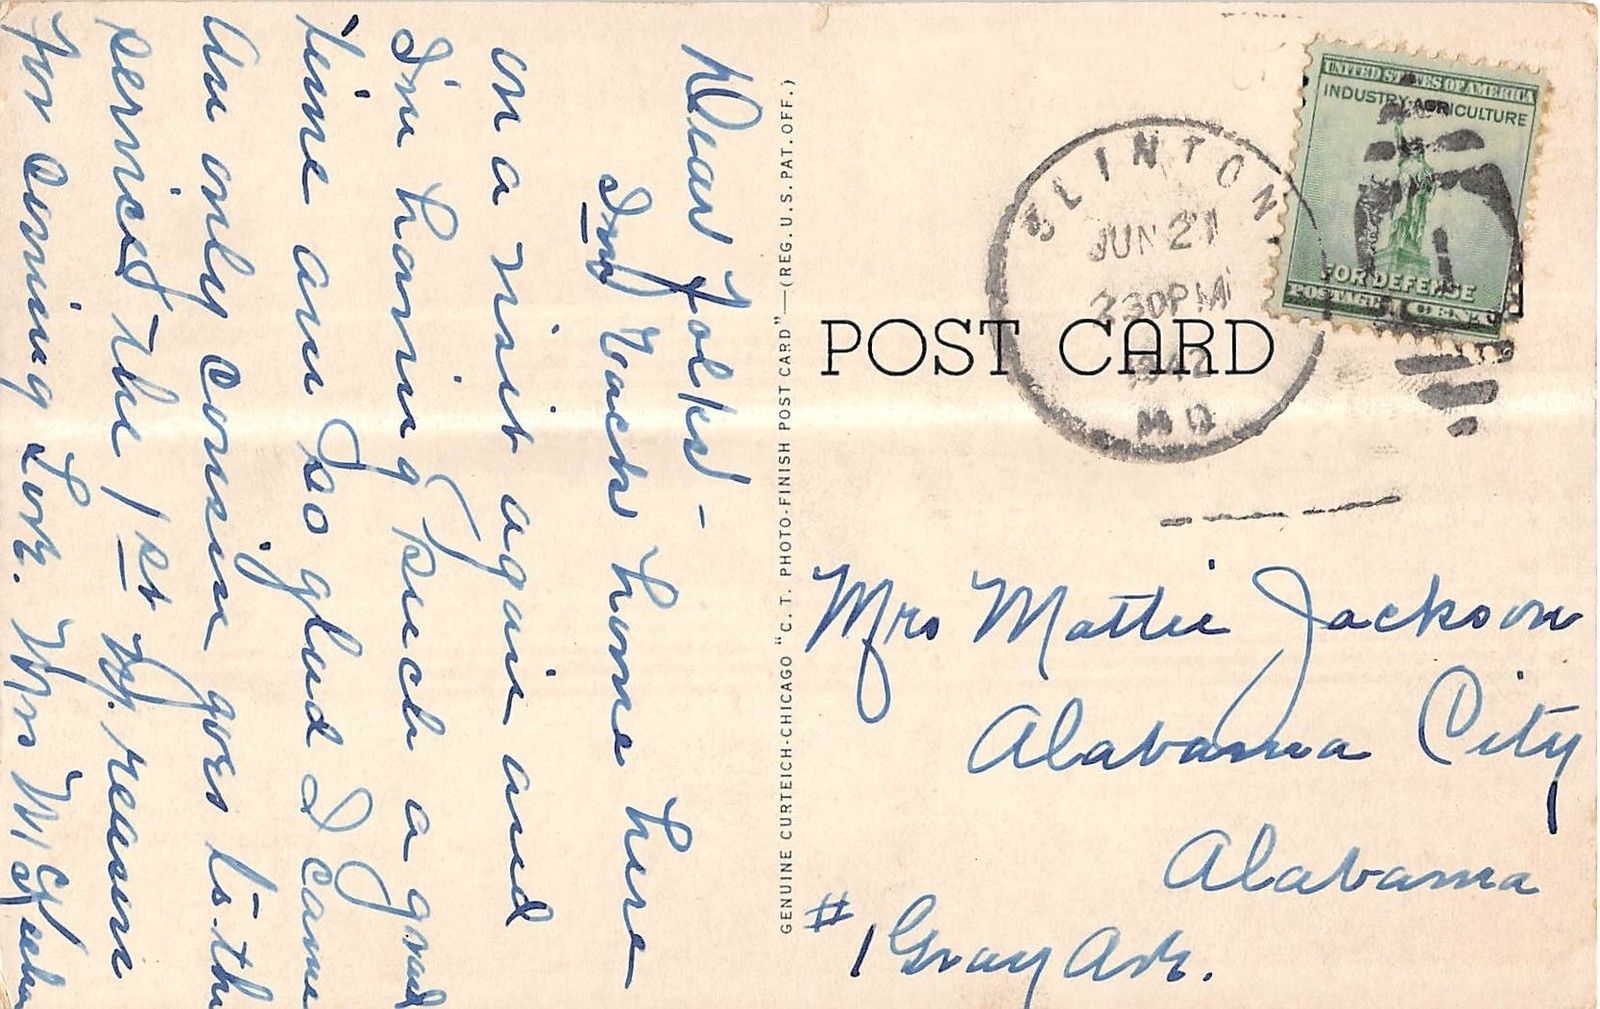 Dear Folks -
I'm back home here
on a visit again and
I'm having such a grand
time am so glad I came
An only cousin goes to the
service the 1st my reason
for coming Love. Mrs
GENUINE CURTEICH-CHICAGO "C. T. PHOTO-FINISH POST CARD"—(REG. U. S. PAT. OFF.)
CLINTON
JUN 21
230PM
1942
MO
UNITED STATES OF AMERICA
INDUSTRY AGRICULTURE
FOR DEFENSE
POSTAGE 1 CENT
POST CARD
Mrs Mattie Jackson
Alabama City,
Alabama
#1 Gray Ave.